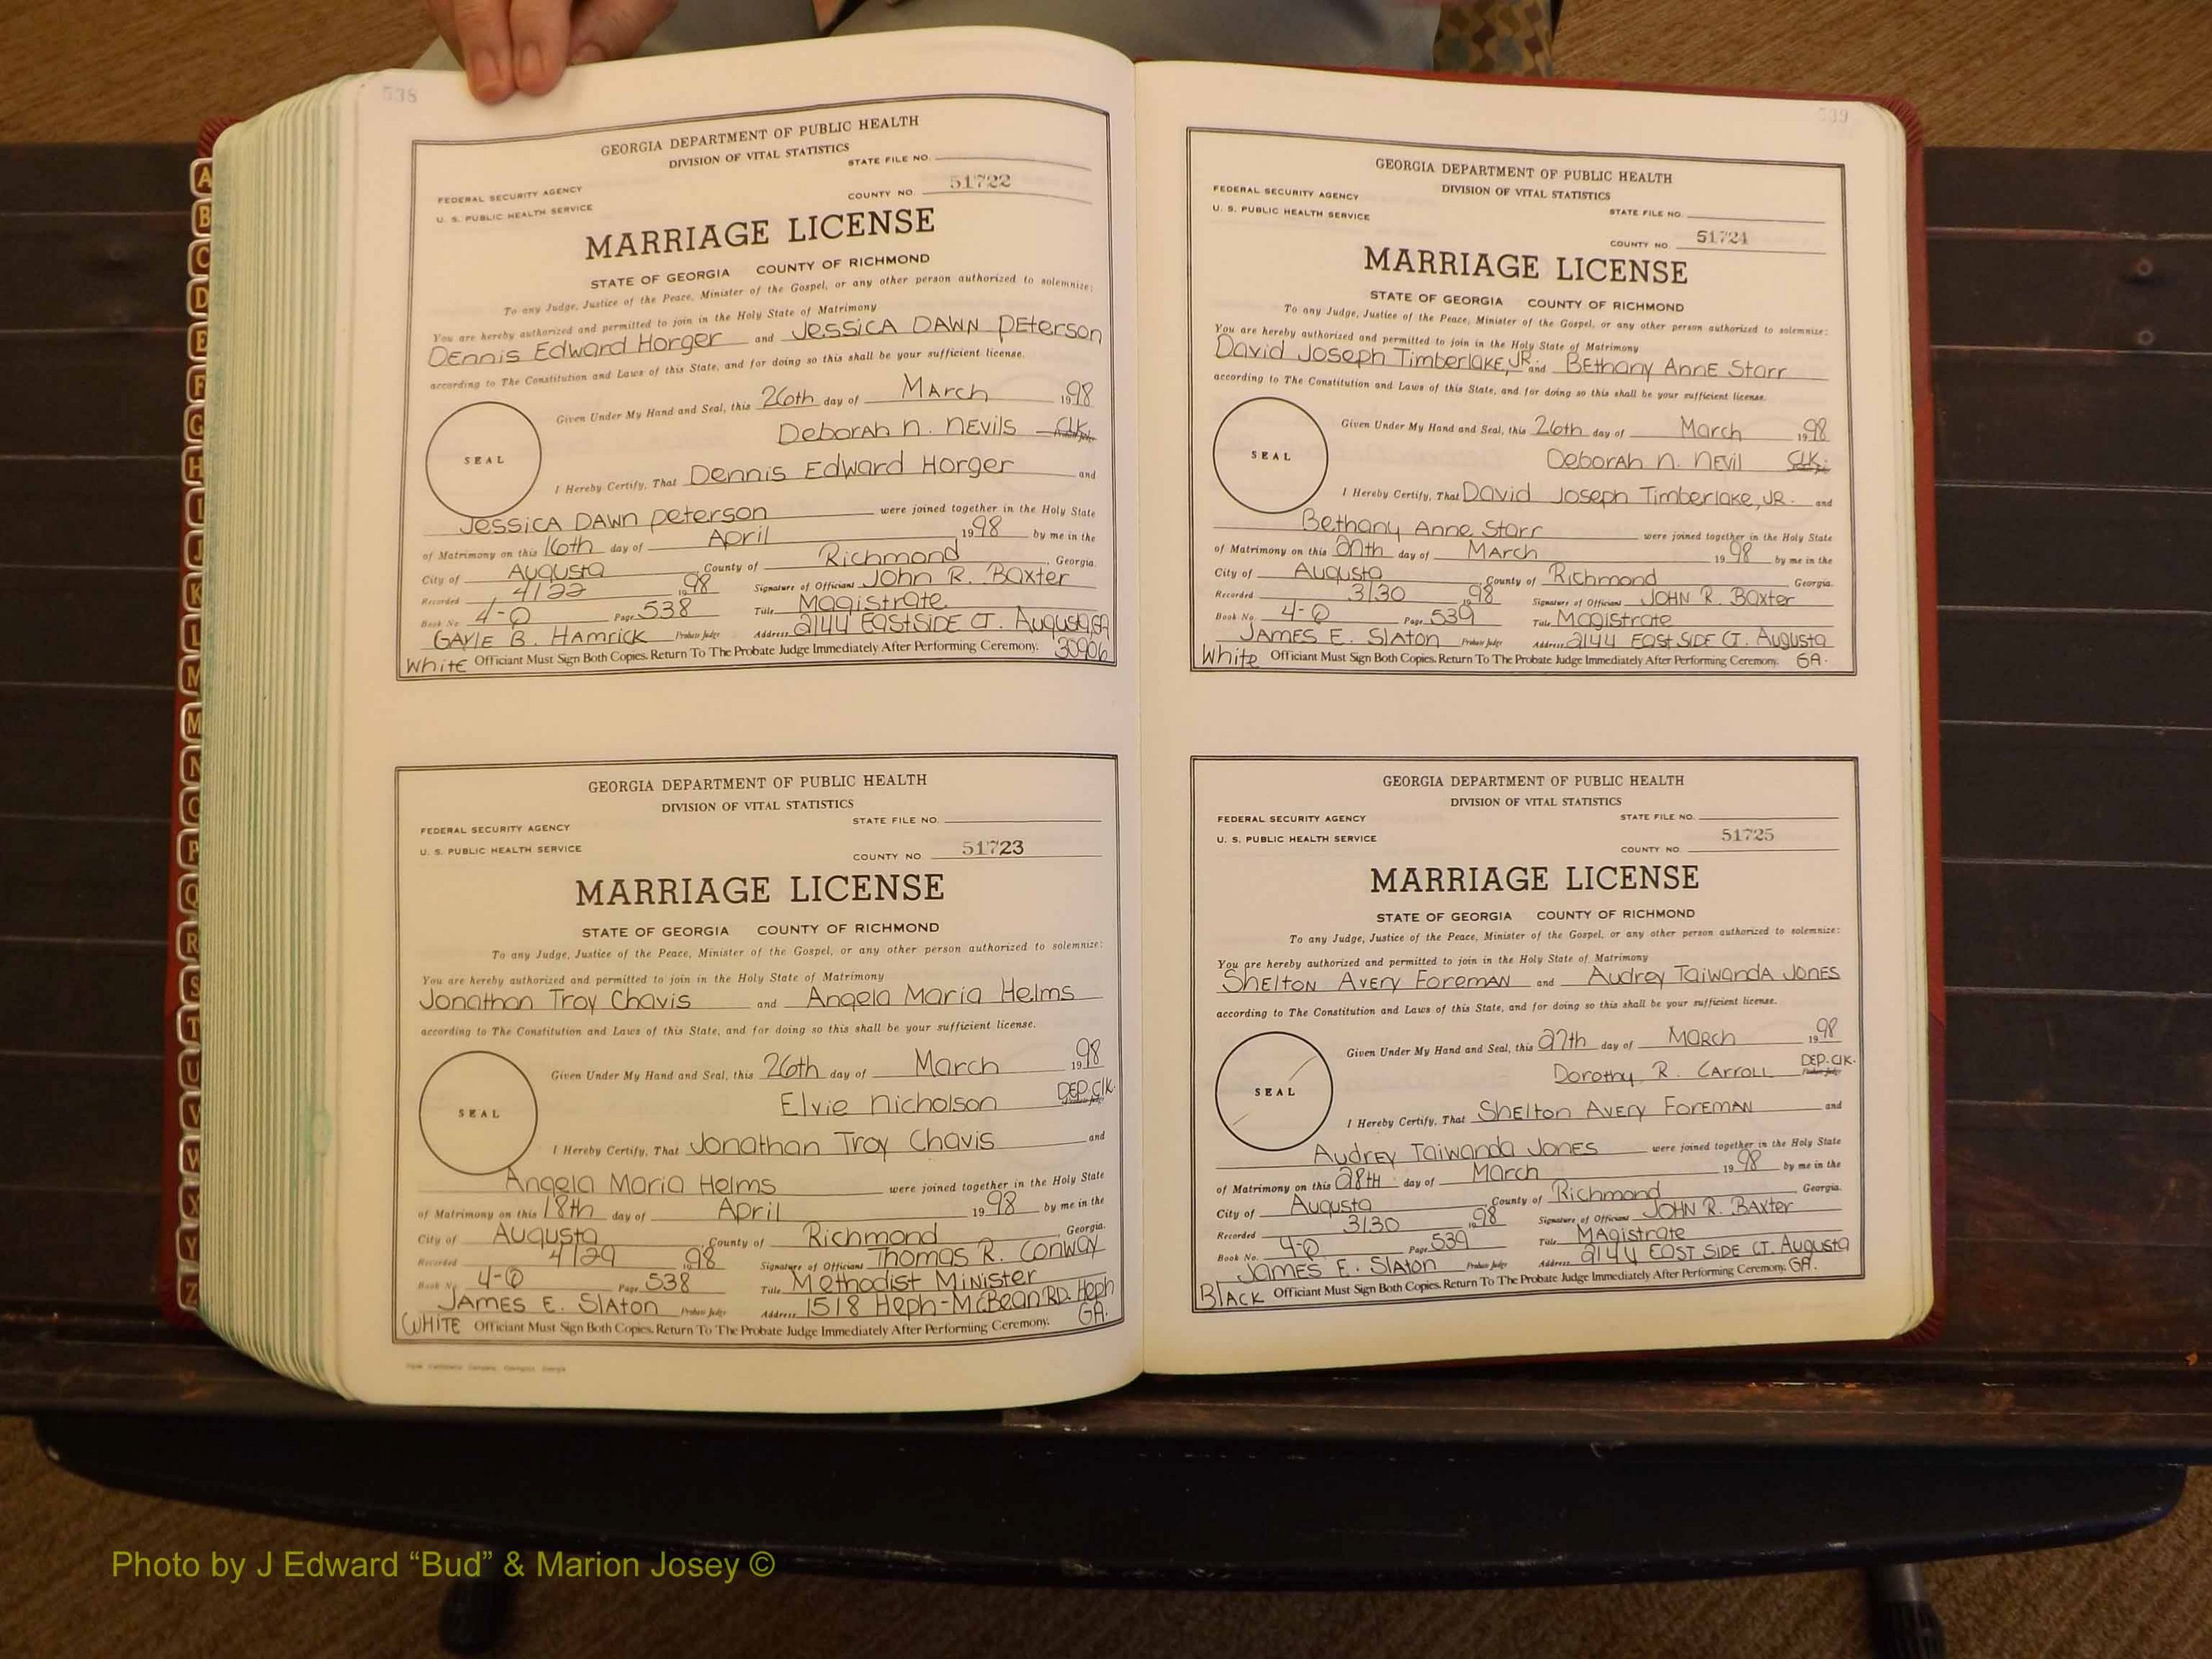 538
GEORGIA DEPARTMENT OF PUBLIC HEALTH
DIVISION OF VITAL STATISTICS
STATE FILE NO.
FEDERAL SECURITY AGENCY
U. S. PUBLIC HEALTH SERVICE
COUNTY NO. 51722
MARRIAGE LICENSE
STATE OF GEORGIA COUNTY OF RICHMOND
To any Judge, Justice of the Peace, Minister of the Gospel, or any other person authorized to solemnize:
You are hereby authorized and permitted to join in the Holy State of Matrimony
Dennis Edward Horger and Jessica Dawn Peterson
according to The Constitution and Laws of this State, and for doing so this shall be your sufficient license.
Given Under My Hand and Seal, this 26th day of March 1998
Deborah N. Nevils CLK.
SEAL
I Hereby Certify, That Dennis Edward Horger and
Jessica Dawn Peterson were joined together in the Holy State
of Matrimony on this 16th day of April 1998 by me in the
City of Augusta, County of Richmond, Georgia.
Recorded 4/22 1998 Signature of Officiant John R. Baxter
Book No. 4-Q Page 538 Title Magistrate
GAYLE B. HAMRICK Probate Judge Address 2144 EASTSIDE CT. Augusta, GA
White Officiant Must Sign Both Copies. Return To The Probate Judge Immediately After Performing Ceremony. 30906
GEORGIA DEPARTMENT OF PUBLIC HEALTH
DIVISION OF VITAL STATISTICS
STATE FILE NO.
FEDERAL SECURITY AGENCY
U. S. PUBLIC HEALTH SERVICE
COUNTY NO 51723
MARRIAGE LICENSE
STATE OF GEORGIA COUNTY OF RICHMOND
To any Judge, Justice of the Peace, Minister of the Gospel, or any other person authorized to solemnize:
You are hereby authorized and permitted to join in the Holy State of Matrimony
Jonathan Troy Chavis and Angela Maria Helms
according to The Constitution and Laws of this State, and for doing so this shall be your sufficient license.
Given Under My Hand and Seal, this 26th day of March 1998
Elvie Nicholson DEP. CLK. Probate Judge
SEAL
I Hereby Certify, That Jonathan Troy Chavis and
Angela Maria Helms were joined together in the Holy State
of Matrimony on this 18th day of April 1998 by me in the
City of Augusta, County of Richmond, Georgia.
Recorded 4/29 1998 Signature of Officiant Thomas R. Conway
Book No. 4-Q Page 538 Title Methodist Minister
JAMES E. SLATON Probate Judge Address 1518 Heph-McBean RD. Heph
WHITE Officiant Must Sign Both Copies. Return To The Probate Judge Immediately After Performing Ceremony. GA.
539
GEORGIA DEPARTMENT OF PUBLIC HEALTH
DIVISION OF VITAL STATISTICS
FEDERAL SECURITY AGENCY
U. S. PUBLIC HEALTH SERVICE
STATE FILE NO.
COUNTY NO. 51724
MARRIAGE LICENSE
STATE OF GEORGIA COUNTY OF RICHMOND
To any Judge, Justice of the Peace, Minister of the Gospel, or any other person authorized to solemnize:
You are hereby authorized and permitted to join in the Holy State of Matrimony
David Joseph Timberlake, JR. and Bethany Anne Starr
according to The Constitution and Laws of this State, and for doing so this shall be your sufficient license.
Given Under My Hand and Seal, this 26th day of March 1998
Deborah N. Nevil CLK.
SEAL
I Hereby Certify, That David Joseph Timberlake, JR. and
Bethany Anne Starr were joined together in the Holy State
of Matrimony on this 27th day of March 1998 by me in the
City of Augusta, County of Richmond, Georgia.
Recorded 3/30 1998 Signature of Officiant JOHN R. Baxter
Book No. 4-Q Page 539 Title Magistrate
JAMES E. SLATON Probate Judge Address 2144 EAST SIDE CT. Augusta
White Officiant Must Sign Both Copies. Return To The Probate Judge Immediately After Performing Ceremony. GA.
GEORGIA DEPARTMENT OF PUBLIC HEALTH
DIVISION OF VITAL STATISTICS
FEDERAL SECURITY AGENCY
STATE FILE NO.
U. S. PUBLIC HEALTH SERVICE
COUNTY NO. 51725
MARRIAGE LICENSE
STATE OF GEORGIA COUNTY OF RICHMOND
To any Judge, Justice of the Peace, Minister of the Gospel, or any other person authorized to solemnize:
You are hereby authorized and permitted to join in the Holy State of Matrimony
Shelton Avery Foreman and Audrey Taiwanda Jones
according to The Constitution and Laws of this State, and for doing so this shall be your sufficient license.
Given Under My Hand and Seal, this 27th day of March 1998
Dorothy R. Carroll DEP. CLK. Probate Judge
SEAL
I Hereby Certify, That Shelton Avery Foreman and
Audrey Taiwanda Jones were joined together in the Holy State
of Matrimony on this 28th day of March 1998 by me in the
City of Augusta, County of Richmond, Georgia.
Recorded 3/30 1998 Signature of Officiant JOHN R. BAxter
Book No. 4-Q Page 539 Title Magistrate
James E. Slaton Probate Judge Address 2144 EAST SIDE CT. Augusta
Black Officiant Must Sign Both Copies. Return To The Probate Judge Immediately After Performing Ceremony. GA.
A
B
C
D
E
F
G
H
I
J
K
L
M
M
N
O
P
Q
R
S
T
U
V
W
X
Y
Z
Photo by J Edward “Bud” & Marion Josey ©